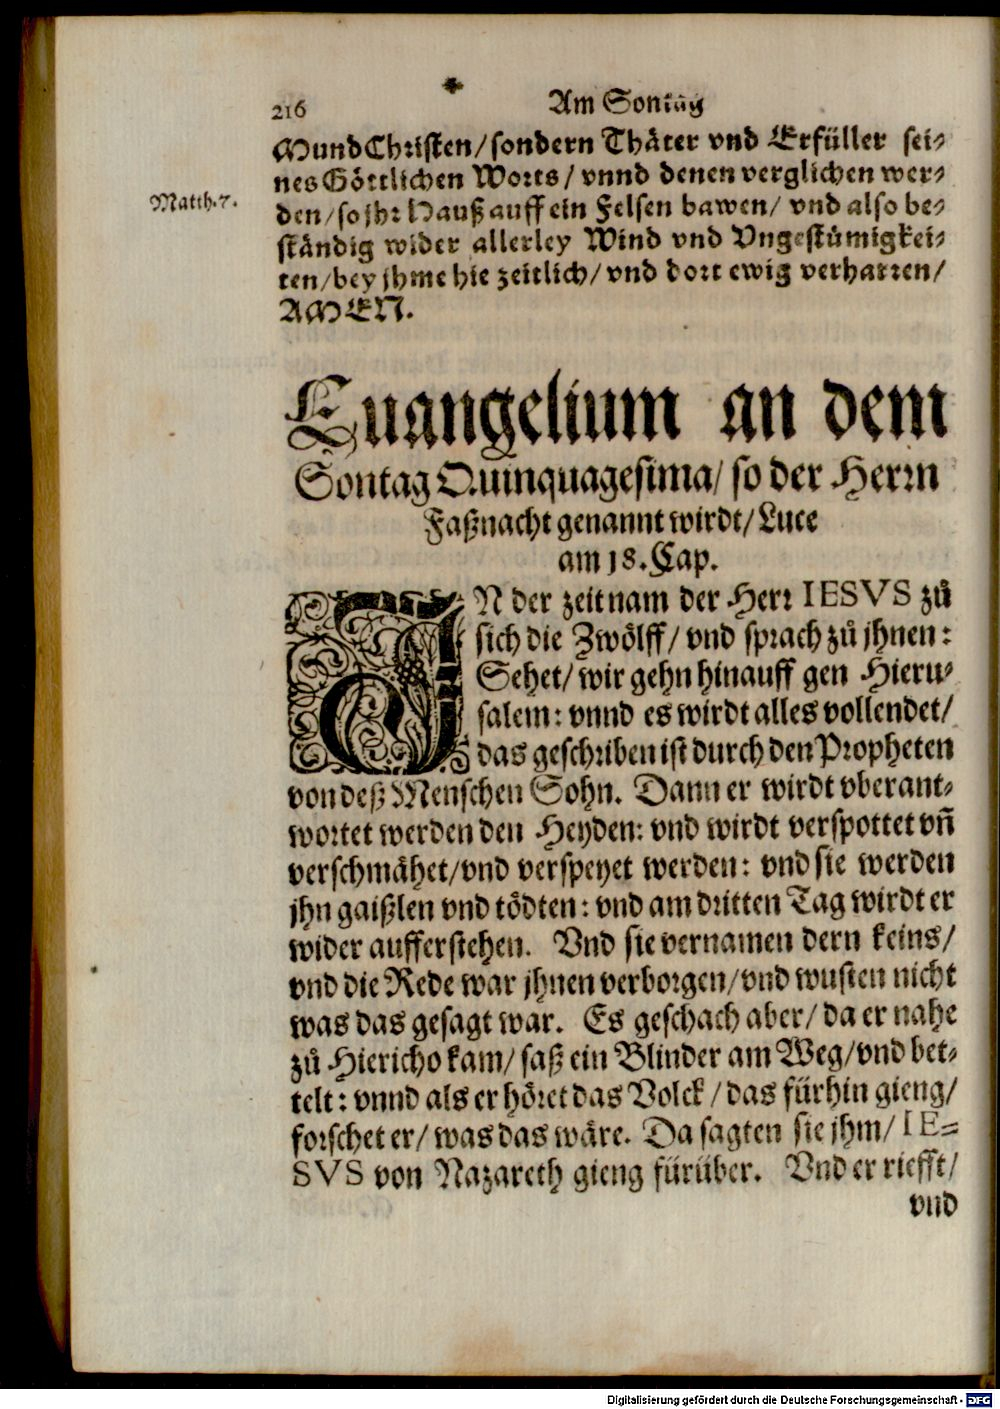 216
Am Sontag
MundChristen/sondern Thäter vnd Erfüller sei-
nes Göttlichen Worts/ vnnd denen verglichen wer-
Matth.7.
den/so jhr Hauß auff ein Felsen bawen/ vnd also be-
ständig wider allerley Wind vnd Vngestümigkei-
ten/bey jhme hie zeitlich/vnd dort ewig verharren/
AMEN.
Euangelium an dem
Sontag Quinquagesima/ so der Herrn
Faßnacht genannt wirdt/Luce
am 18.Cap.
IN der zeit nam der Herr IESVS zů
sich die Zwölff/ vnd sprach zů jhnen:
Sehet/ wir gehn hinauff gen Hieru-
salem: vnnd es wirdt alles vollendet/
das geschriben ist durch den Propheten
von deß Menschen Sohn. Dann er wirdt vberant-
wortet werden den Heyden: vnd wirdt verspottet vñ
verschmähet/vnd verspeyet werden: vnd sie werden
jhn gaißlen vnd tödten: vnd am dritten Tag wirdt er
wider aufferstehen. Vnd sie vernamen dern keins/
vnd die Rede war jhnen verborgen/vnd wusten nicht
was das gesagt war. Es geschach aber/ da er nahe
zů Hiericho kam/ saß ein Blinder am Weg/vnd bet-
telt: vnnd als er höret das Volck/ das fürhin gieng/
forschet er/ was das wäre. Da sagten sie jhm/ IE-
SVS von Nazareth gieng fürüber. Vnd er riefft/
vnd
Digitalisierung gefördert durch die Deutsche Forschungsgemeinschaft - DFG